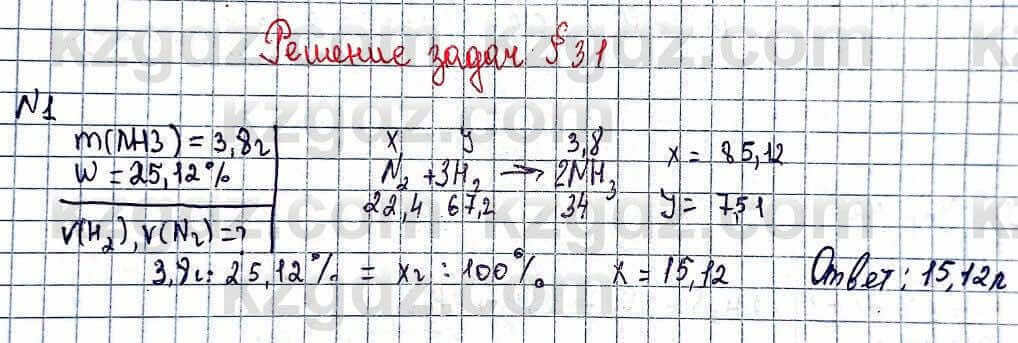 Решение задач §31
N1
m(NH3) = 3,8г
W = 25,12%
V(H₂), V(N₂) = ?
x y 3,8
N₂ + 3H₂ → 2NH₃
22,4 67,2 34
x = 85,12
y = 7,51
3,8г : 25,12% = xг : 100%
x = 15,12
Ответ: 15,12л